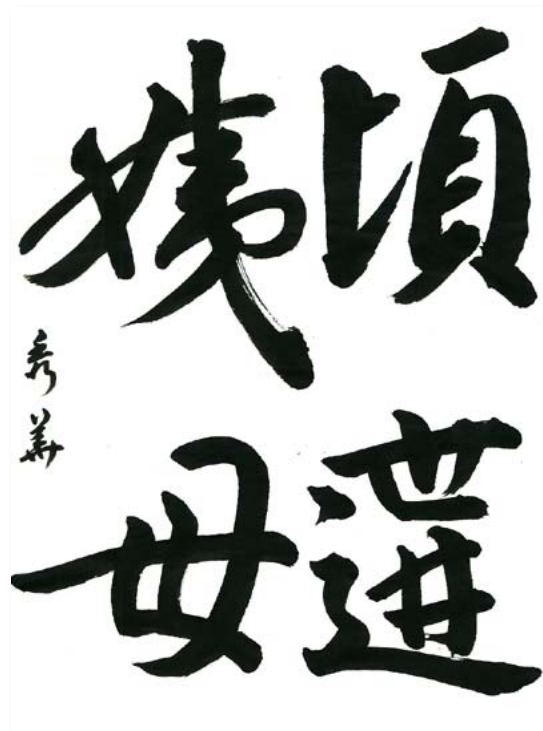 頃遘
姨母
秀華